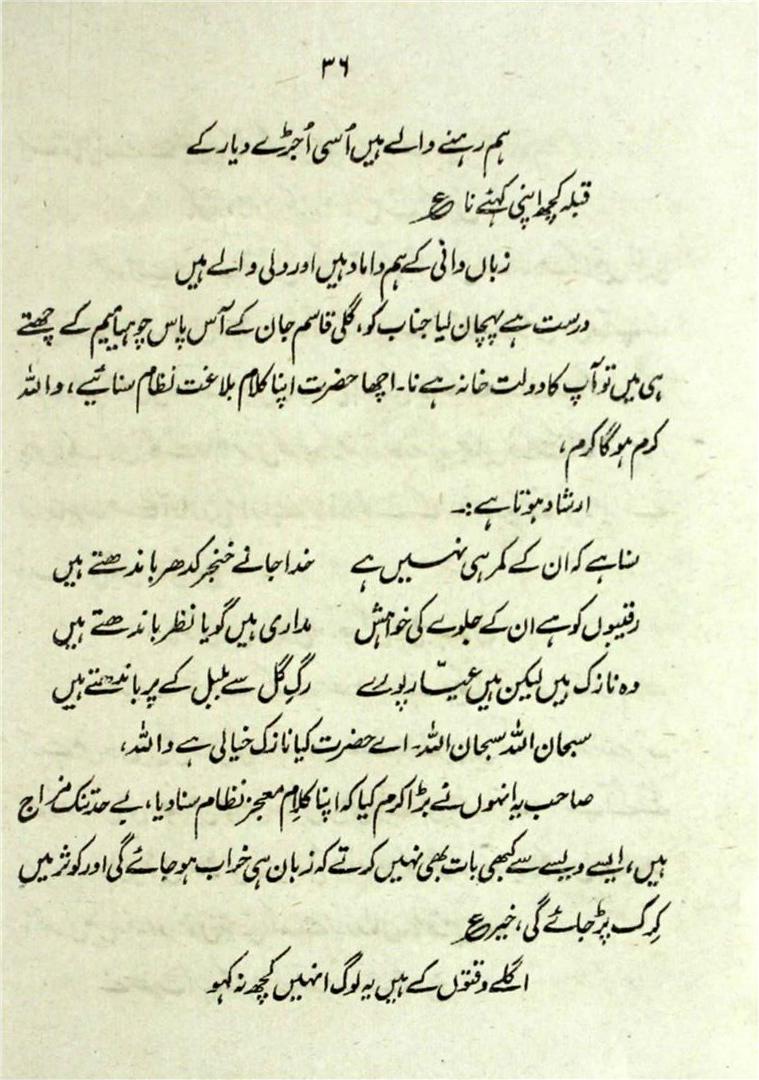 ۳۶
ہم رہنے والے ہیں اُسی اُجڑے دیار کے
قبلہ کچھ اپنی کہئے نا ؏
زباں دانی کے ہم داماد ہیں اور دلی والے ہیں
درست ہے پہچان لیا جناب کو، گلی قاسم جان کے آس پاس چوہیا بیم کے چھتے
ہی میں تو آپ کا دولت خانہ ہے نا۔ اچھا حضرت اپنا کلام بلاغت نظام سنائیے، واللہ
کرم ہوگا کرم،
ارشاد ہوتا ہے :۔
سنا ہے کہ ان کے کمر ہی نہیں ہے خدا جانے خنجر کدھر باندھتے ہیں
رقیبوں کو ہے ان کے جلوے کی خواہش مداری ہیں گویا نظر باندھتے ہیں
وہ نازک ہیں لیکن ہیں عیّار پورے رگِ گل سے بلبل کے پر باندھتے ہیں
سبحان اللہ سبحان اللہ۔ اے حضرت کیا نازک خیالی ہے واللہ،
صاحب یہ انہوں نے بڑا کرم کیا کہ اپنا کلامِ معجز نظام سنا دیا، بے حد تنک مزاج
ہیں، ایسے ویسے سے کبھی بات بھی نہیں کرتے کہ زبان ہی خراب ہو جائے گی اور کوثر میں
کِرک پڑ جائے گی، خیر ؏
اگلے وقتوں کے ہیں یہ لوگ انہیں کچھ نہ کہو